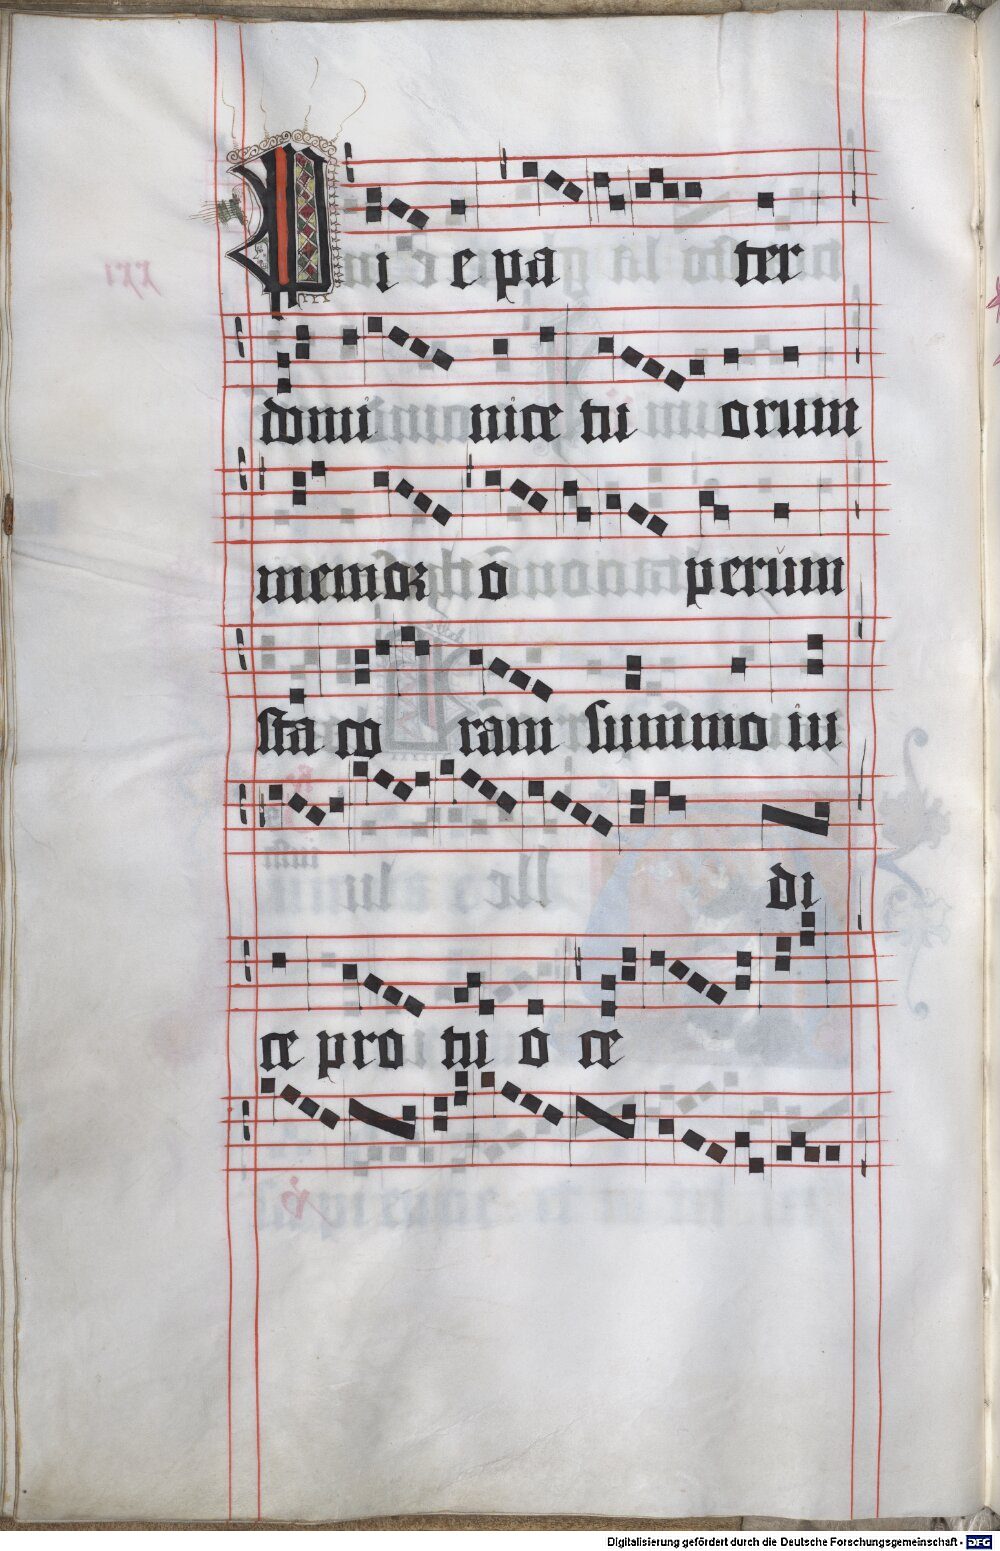 Pi e pa ter
domi nice tu orum
memor o perum
sta co ram summo iu
di
ce pro tu o ce
Digitalisierung gefördert durch die Deutsche Forschungsgemeinschaft - DFG